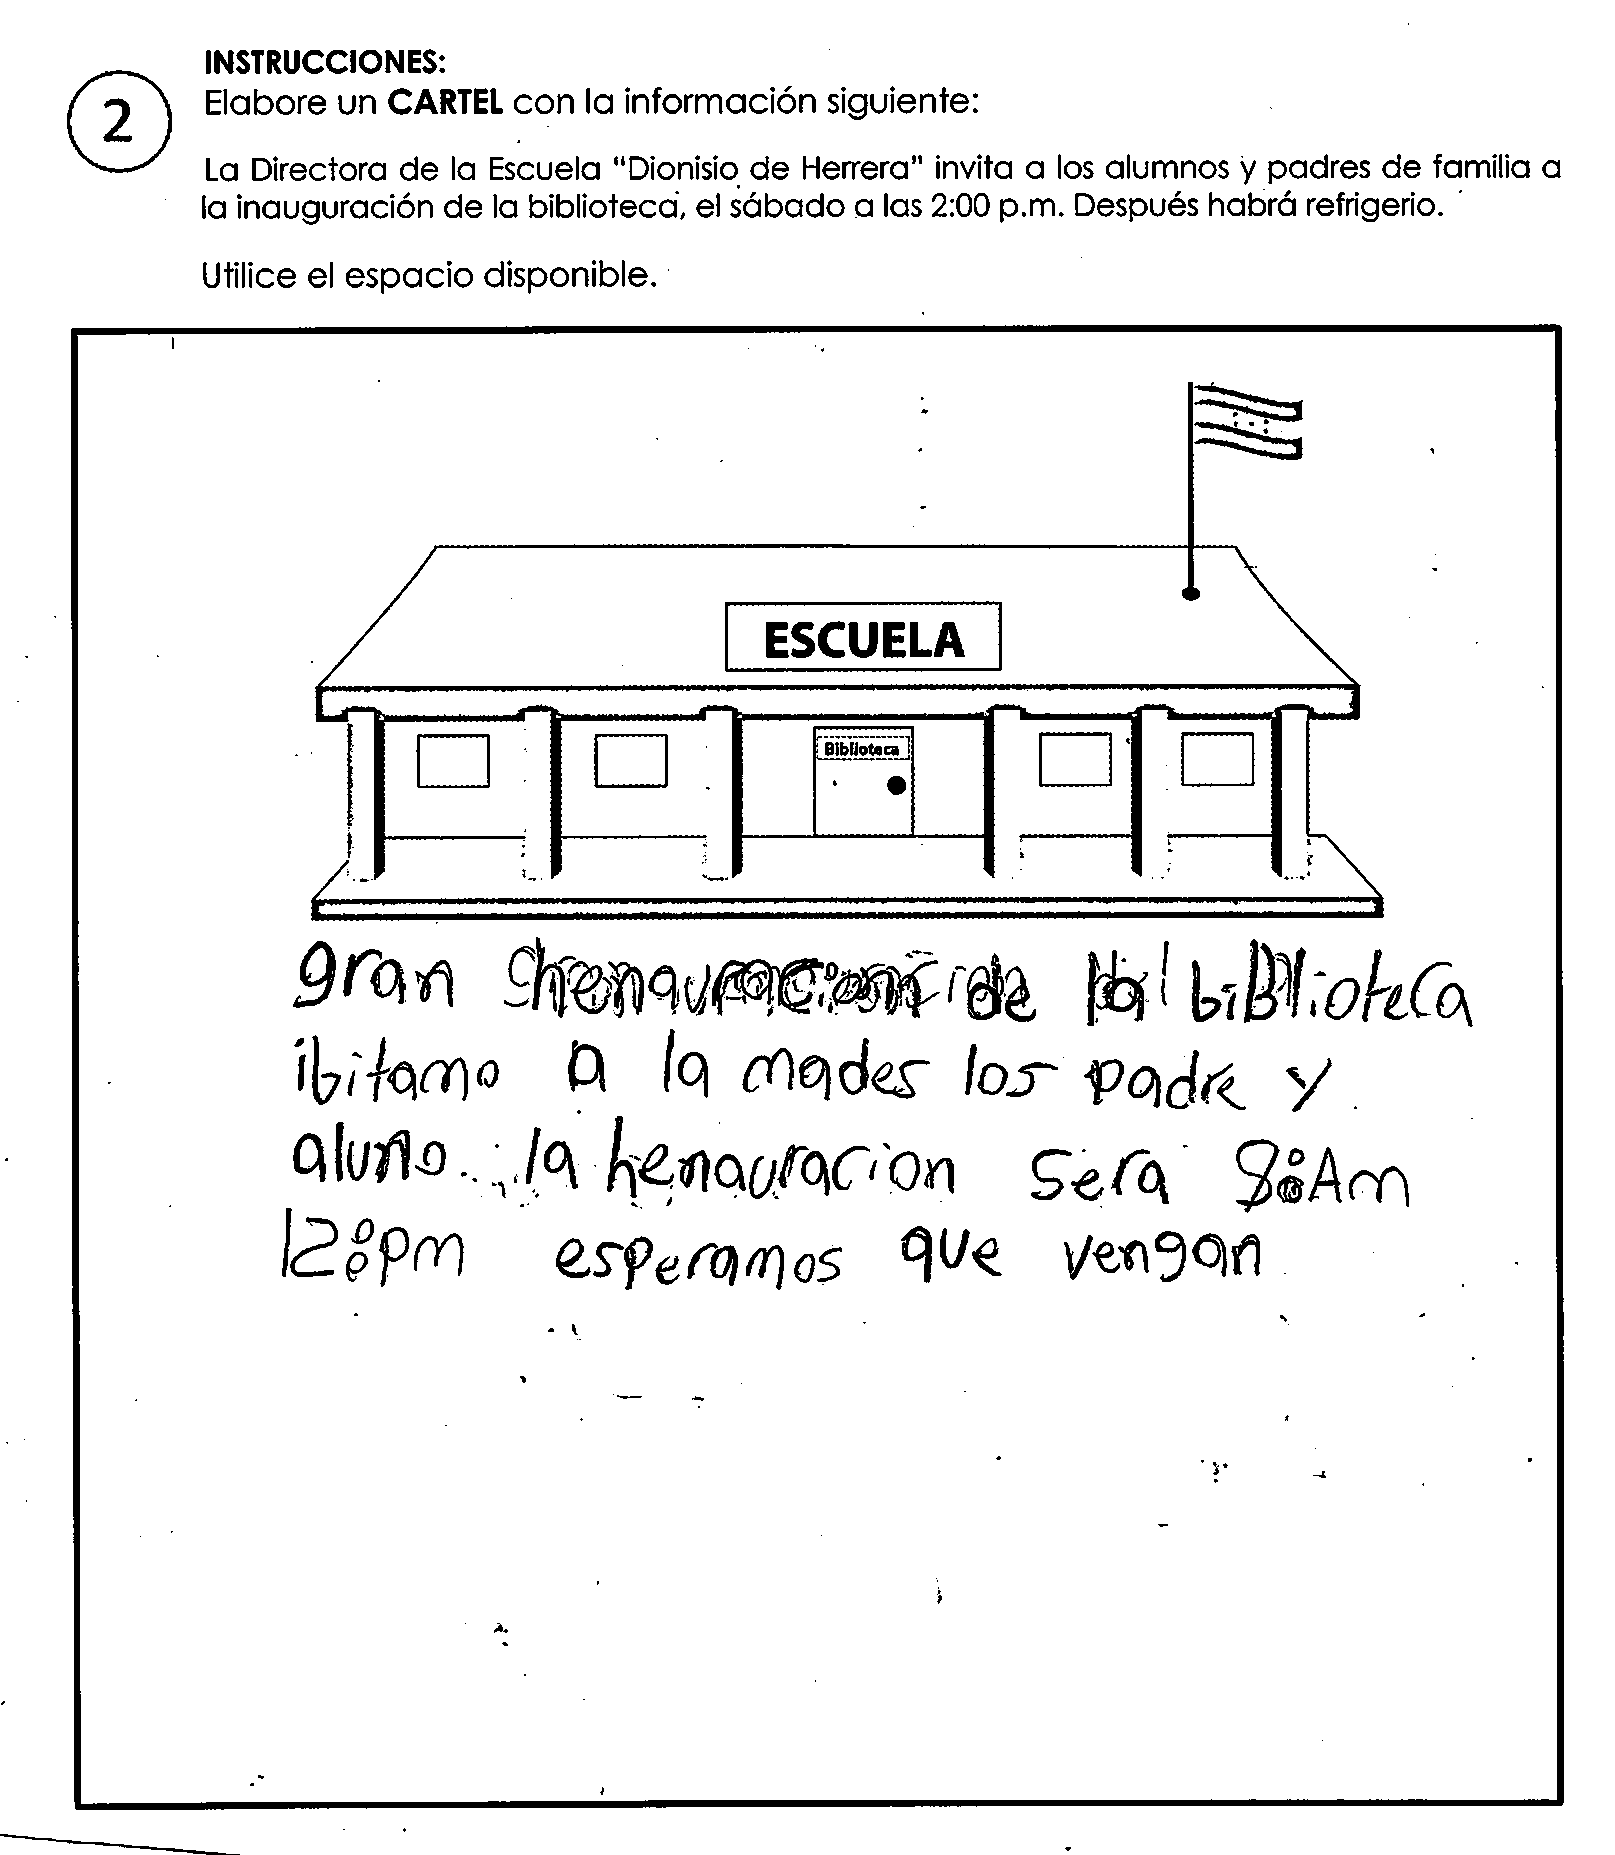 INSTRUCCIONES:
2
Elabore un CARTEL con la información siguiente:
La Directora de la Escuela "Dionisio de Herrera" invita a los alumnos y padres de familia a
la inauguración de la biblioteca, el sábado a las 2:00 p.m. Después habrá refrigerio.
Utilice el espacio disponible.
ESCUELA
Biblioteca
gran henauracion de la biBlioteca
ibitamo a la mades los padre y
aluno. la henauracion sera 8:Am
12:pm esperamos que vengan